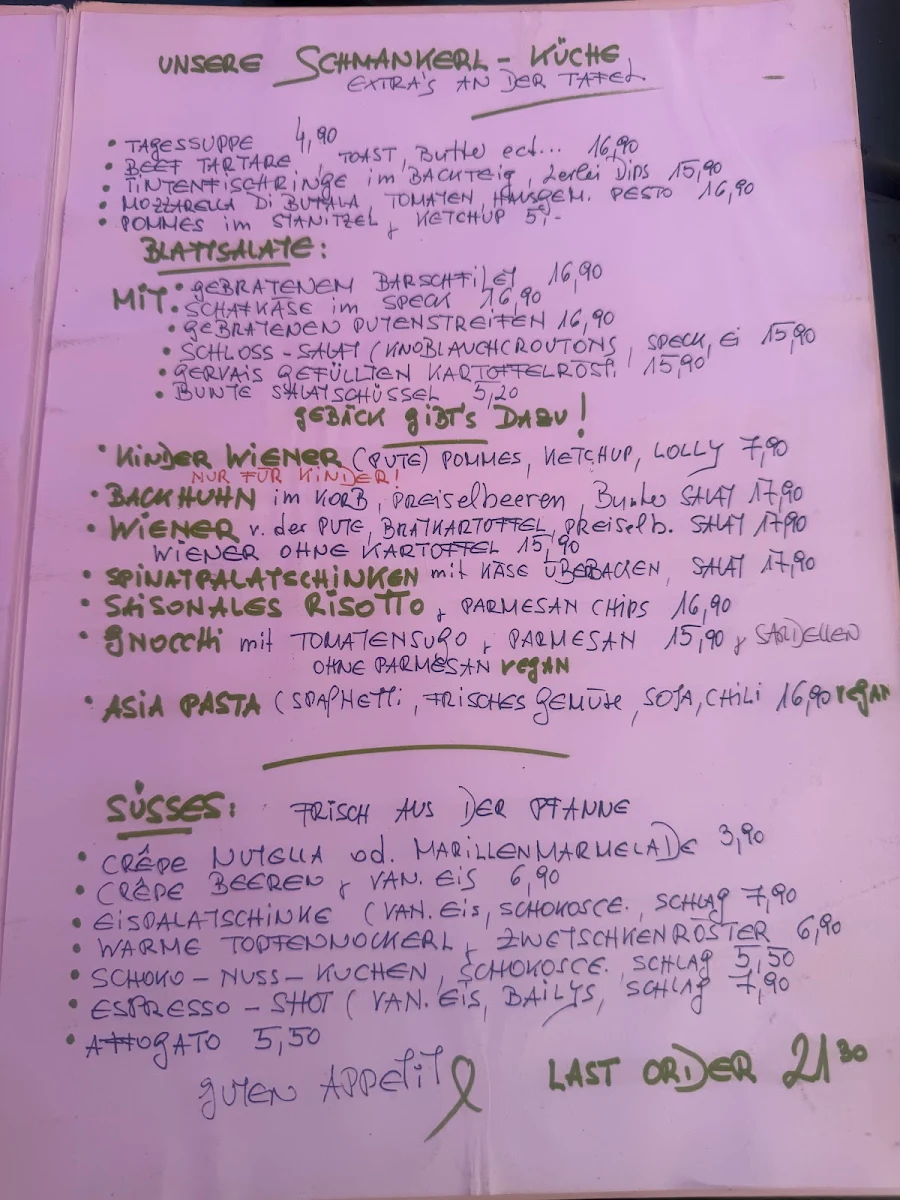 UNSERE SCHMANKERL - KÜCHE
EXTRA'S AN DER TAFEL
• TAGESSUPPE 4,90
• BEEF TARTARE, TOAST, Butter ect... 16,90
• TINTENFISCHRINGE im BACKTEIG, 2erlei Dips 15,90
• MOZZARELLA Di BUFALA, TOMATEN, HAUSGEM. PESTO 16,90
• POMMES im STANITZEL + KETCHUP 5,-
BLATTSALATE:
MIT: • GEBRATENEM BARSCHFILET 16,90
• SCHAFKÄSE im SPECK 16,90
• GEBRATENEN PUTENSTREIFEN 16,90
• SCHLOSS - SALAT (KNOBLAUCHCROUTONS, SPECK, Ei 15,90
• GERVAIS GEFÜLLTEN KARTOFFELRÖSTi 15,90
• BUNTE SALATSCHÜSSEL 5,20
GEBÄCK GIBT'S DAZU!
• KINDER WIENER (PUTE) POMMES, KETCHUP, LOLLY 7,90
NUR FÜR KINDER!
• BACKHUHN im KORB, PREISELBEEREN, Bunter SALAT 17,90
• WIENER v. der PUTE, BRATKARTOFFEL, PREISELB. SALAT 17,90
WIENER OHNE KARTOFFEL 15,90
• SPINATPALATSCHINKEN mit KÄSE ÜBERBACKEN, SALAT 17,90
• SAISONALES RISOTTO + PARMESAN CHIPS 16,90
• GNOCCHI mit TOMATENSUGO + PARMESAN 15,90 + SARDELLEN
OHNE PARMESAN VEGAN
• ASIA PASTA (SPAGHETTI, FRISCHES GEMÜSE, SOJA, CHILI 16,90 VEGAN
SÜSSES: FRISCH AUS DER PFANNE
• CRÊPE NUTELLA od. MARILLENMARMELADE 3,90
• CRÊPE BEEREN + VAN. EIS 6,90
• EISPALATSCHINKE (VAN. EIS, SCHOKOSCE., SCHLAG 7,90
• WARME TOPFENNOCKERL + ZWETSCHKENRÖSTER 6,90
• SCHOKO - NUSS - KUCHEN, SCHOKOSCE. SCHLAG 5,50
• ESPRESSO - SHOT (VAN. EIS, BAILYS, SCHLAG 7,90
• AFFOGATO 5,50
GUTEN APPETIT
LAST ORDER 21 30